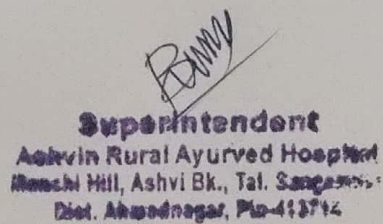 Superintendent
Ashvin Rural Ayurved Hospital
Manchi Hill, Ashvi Bk., Tal. Sangamner
Dist. Ahmednagar, Pin-413714